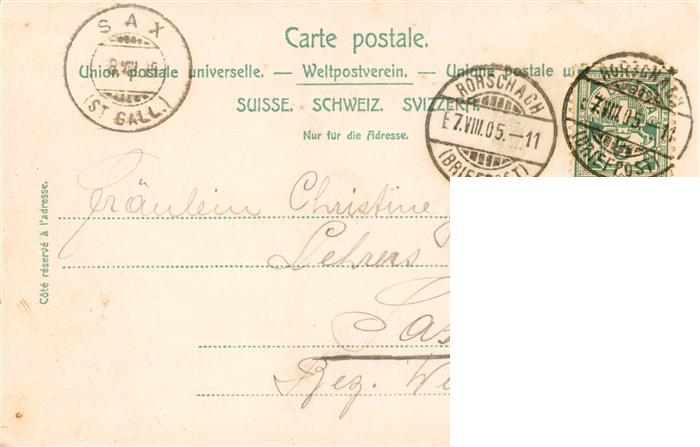 SAX
8 VIII 05
(ST. GALL.)
Carte postale.
Union postale universelle. — Weltpostverein. — Unione postale
SUISSE. SCHWEIZ. SVIZZERA.
Nur für die Adresse.
RORSCHACH
E 7.VIII.05.–11
(BRIEFPOST)
RORSCHACH
7.VIII.05.–11
(BRIEFPOST)
Côté réservé à l'adresse.
Fräulein Christine
Lehrers
Bez.